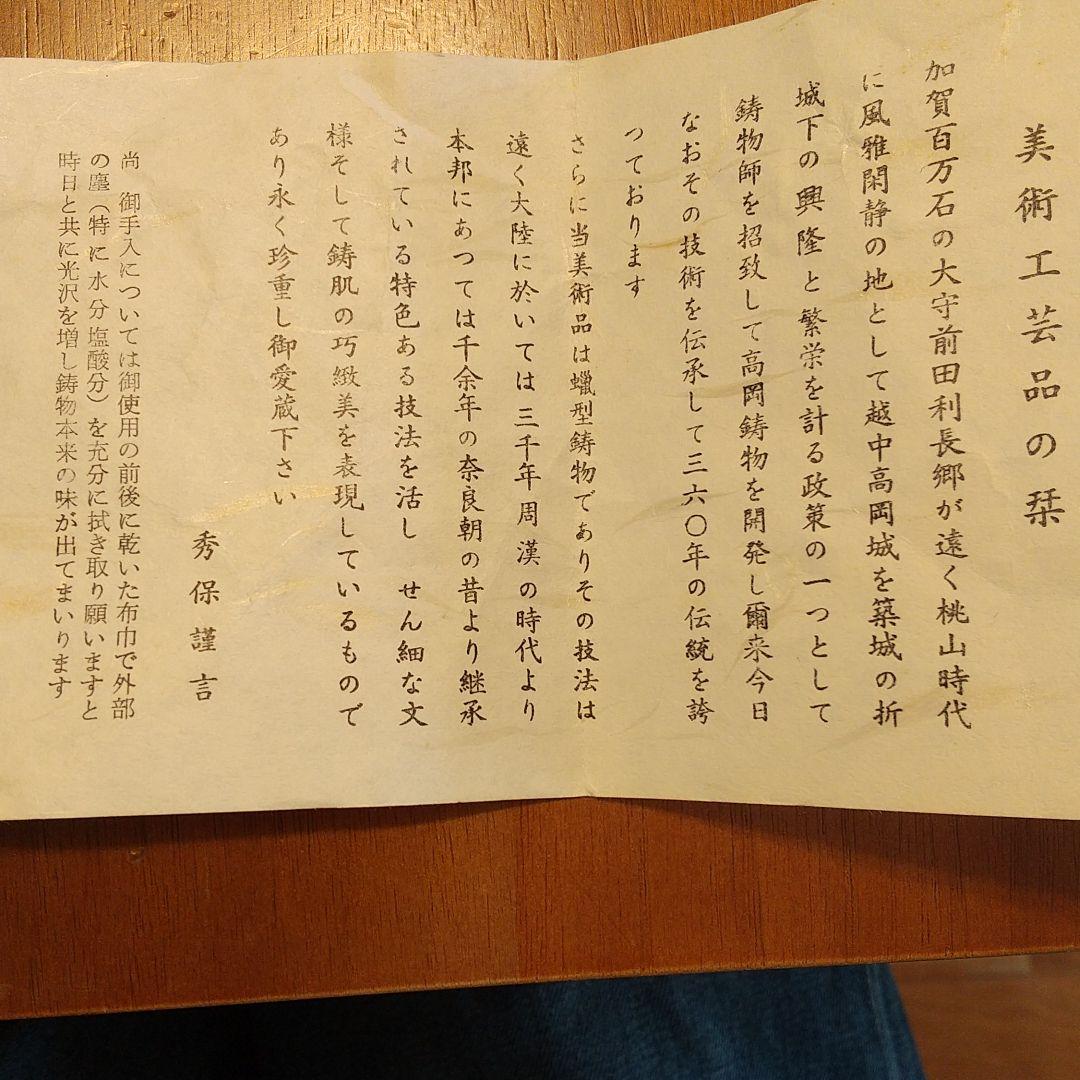 美術工芸品の栞
加賀百万石の大守前田利長郷が遠く桃山時代
に風雅閑静の地として越中高岡城を築城の折
城下の興隆と繁栄を計る政策の一つとして
鋳物師を招致して高岡鋳物を開発し爾来今日
なおその技術を伝承して三六〇年の伝統を誇
つております
さらに当美術品は蠟型鋳物でありその技法は
遠く大陸に於いては三千年周漢の時代より
本邦にあつては千余年の奈良朝の昔より継承
されている特色ある技法を活し せん細な文
様そして鋳肌の巧緻美を表現しているもので
あり永く珍重し御愛蔵下さい
秀保謹言
尚 御手入については御使用の前後に乾いた布巾で外部
の塵(特に水分塩酸分)を充分に拭き取り願いますと
時日と共に光沢を増し鋳物本来の味が出てまいります